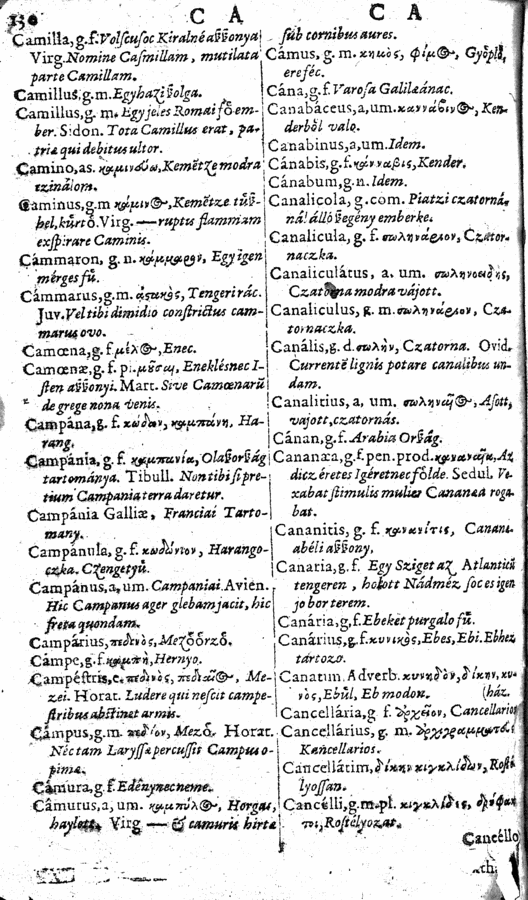 130
C A
Camilla, g.f. Volscusoc Kiralné aszszonya
Virg. Nomine Casmillam, mutilata
parte Camillam.
Camillus, g.m. Egyhazi szolga.
Camillus, g.m. Egy jeles Romai fö em-
ber. Sidon. Tota Camillus erat, pa-
triæ qui debitus ultor.
Camino, as. καμινεύω, Kemētze modra
Caminus, g.m κάμιν, Kemētze
hel, kürtö. Virg. — ruptis flammam
exspirare Caminis.
Cámmaron, g. n. κάμμαρον, Egy igen
mérges fü.
Cámmarus, g.m. ἀστακὸς, Tengeri rác.
Juv. Vel tibi dimidio constrictus cam-
marus ovo.
Camœna, g.f. μέλ, Enec.
Camœnæ, g.f. pl. μοῦσαι, Eneklésnec I-
sten aszszonyi. Mart. Sive Camœnarū
de grege nona venis.
Campána, g.f. κώδων, καμπάνη, Ha-
rang.
Campánia, g. f. καμπανία, Olaszország
tartománya. Tibull. Non tibi si pre-
tium Campania terra daretur.
Campánia Galliæ, Franciai Tarto-
many.
Campánula, g. f. κωδώνιον, Harango-
czka. Czengetyű.
Campánus, a, um. Campaniai. Avien.
Hic Campanus ager glebam jacit, hic
freta quondam.
Campárius, πεδινὸς, Mezöörzö.
Cámpe, g.f. κάμπη, Hernyo.
Campéstris, e. πεδινὸς, Me-
zei. Horat. Ludere qui nescit campe-
stribus abstinet armis.
Cámpus, g.m. πεδίον, Mezö. Horat.
Nec tam Laryssæ percussit Campus o-
pimæ.
Cámura, g.f. Edénynec neme.
Cámurus, a, um. καμπύλ, Horgas,
haylott. Virg — & camuris hirtæ
C A
sub cornibus aures.
Cámus, g. m. κημὸς, φίμ, Gyöplö,
ereféc.
Cána, g.f. Varosa Galilæánac.
Canabáceus, a, um. καννάβιν, Ken-
derböl valo.
Canabinus, a, um. Idem.
Cánabis, g.f. κάνναβις, Kender.
Cánabum, g.n. Idem.
Canalicola, g.com. Piatzi czatorná-
nál álló szegény emberke.
Canalicula, g. f. σωληνάριον, Czator-
naczka.
Canaliculátus, a. um. σωληνοειδὴς,
Czatorna modra vájott.
Canaliculus, g. m. σωληνάριον, Cza-
tornaczka.
Canális, g.d. σωλὴν, Czatorna. Ovid.
Currentē lignis potare canalibus un-
dam.
Canalitius, a, um.
vajott, czatornás.
Cánan, g.f. Arabia Orszag.
Cananæa, g.f. pen. prod. Az
dicz éretes Igéretnec földe. Sedul. Ve-
xabat stimulis mulier Cananæa roga-
bat.
Cananitis, g. f. κανανῖτις, Canani-
abéli aszszony,
Canaria, g.f. Egy Sziget az Atlanticū
tengeren, holott Nádméz soc es igen
jo bor terem.
Canária, g.f. Ebeket purgalo fű.
Canárius, g.f. κυνικὸς, Ebes, Ebi. Ebhez
tartozo.
Canatim. Adverb. κυνηδὸν, δίκην, κυ-
νὸς, Ebül, Eb modon. (ház.
Cancellária, g.f. ἀρχεῖον, Cancellarios
Cancellárius, g. m.
Kancellarios.
Cancellátim, δίκην κιγκλίδων, Rosté-
lyossan.
Cancélli, g.m.pl. κιγκλίδες,
Rostélyozat.
Cancéllo